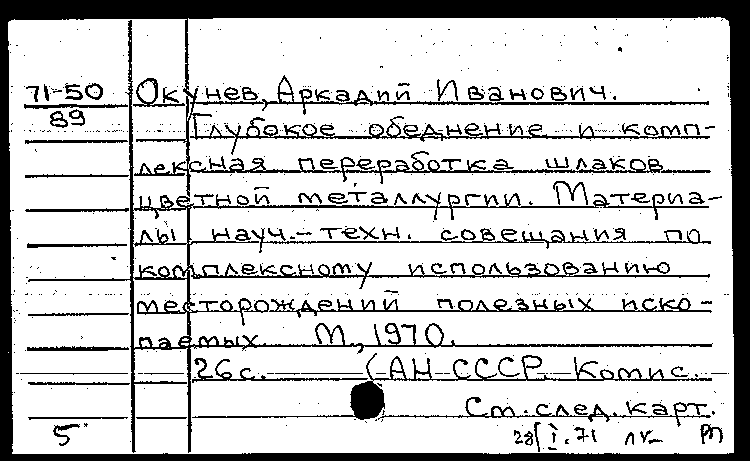 71-50 Окунев, Аркадий Иванович.
89 Глубокое обеднение и комп-
лексная переработка шлаков
цветной металлургии. Материа-
лы науч.-техн. совещания по
комплексному использованию
месторождений полезных иско-
паемых М., 1970.
26 с. (АН СССР. Комис.
См. след. карт.
5 28/I.71